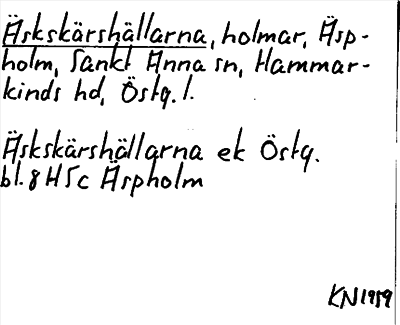 Äskskärshällarna, holmar, Äsp-
holm, Sankt Anna sn, Hammar-
kinds hd, Östg. l.
Äskskärshällarna ek Östg.
bl. 8 H 5c Äspholm
KN 1959